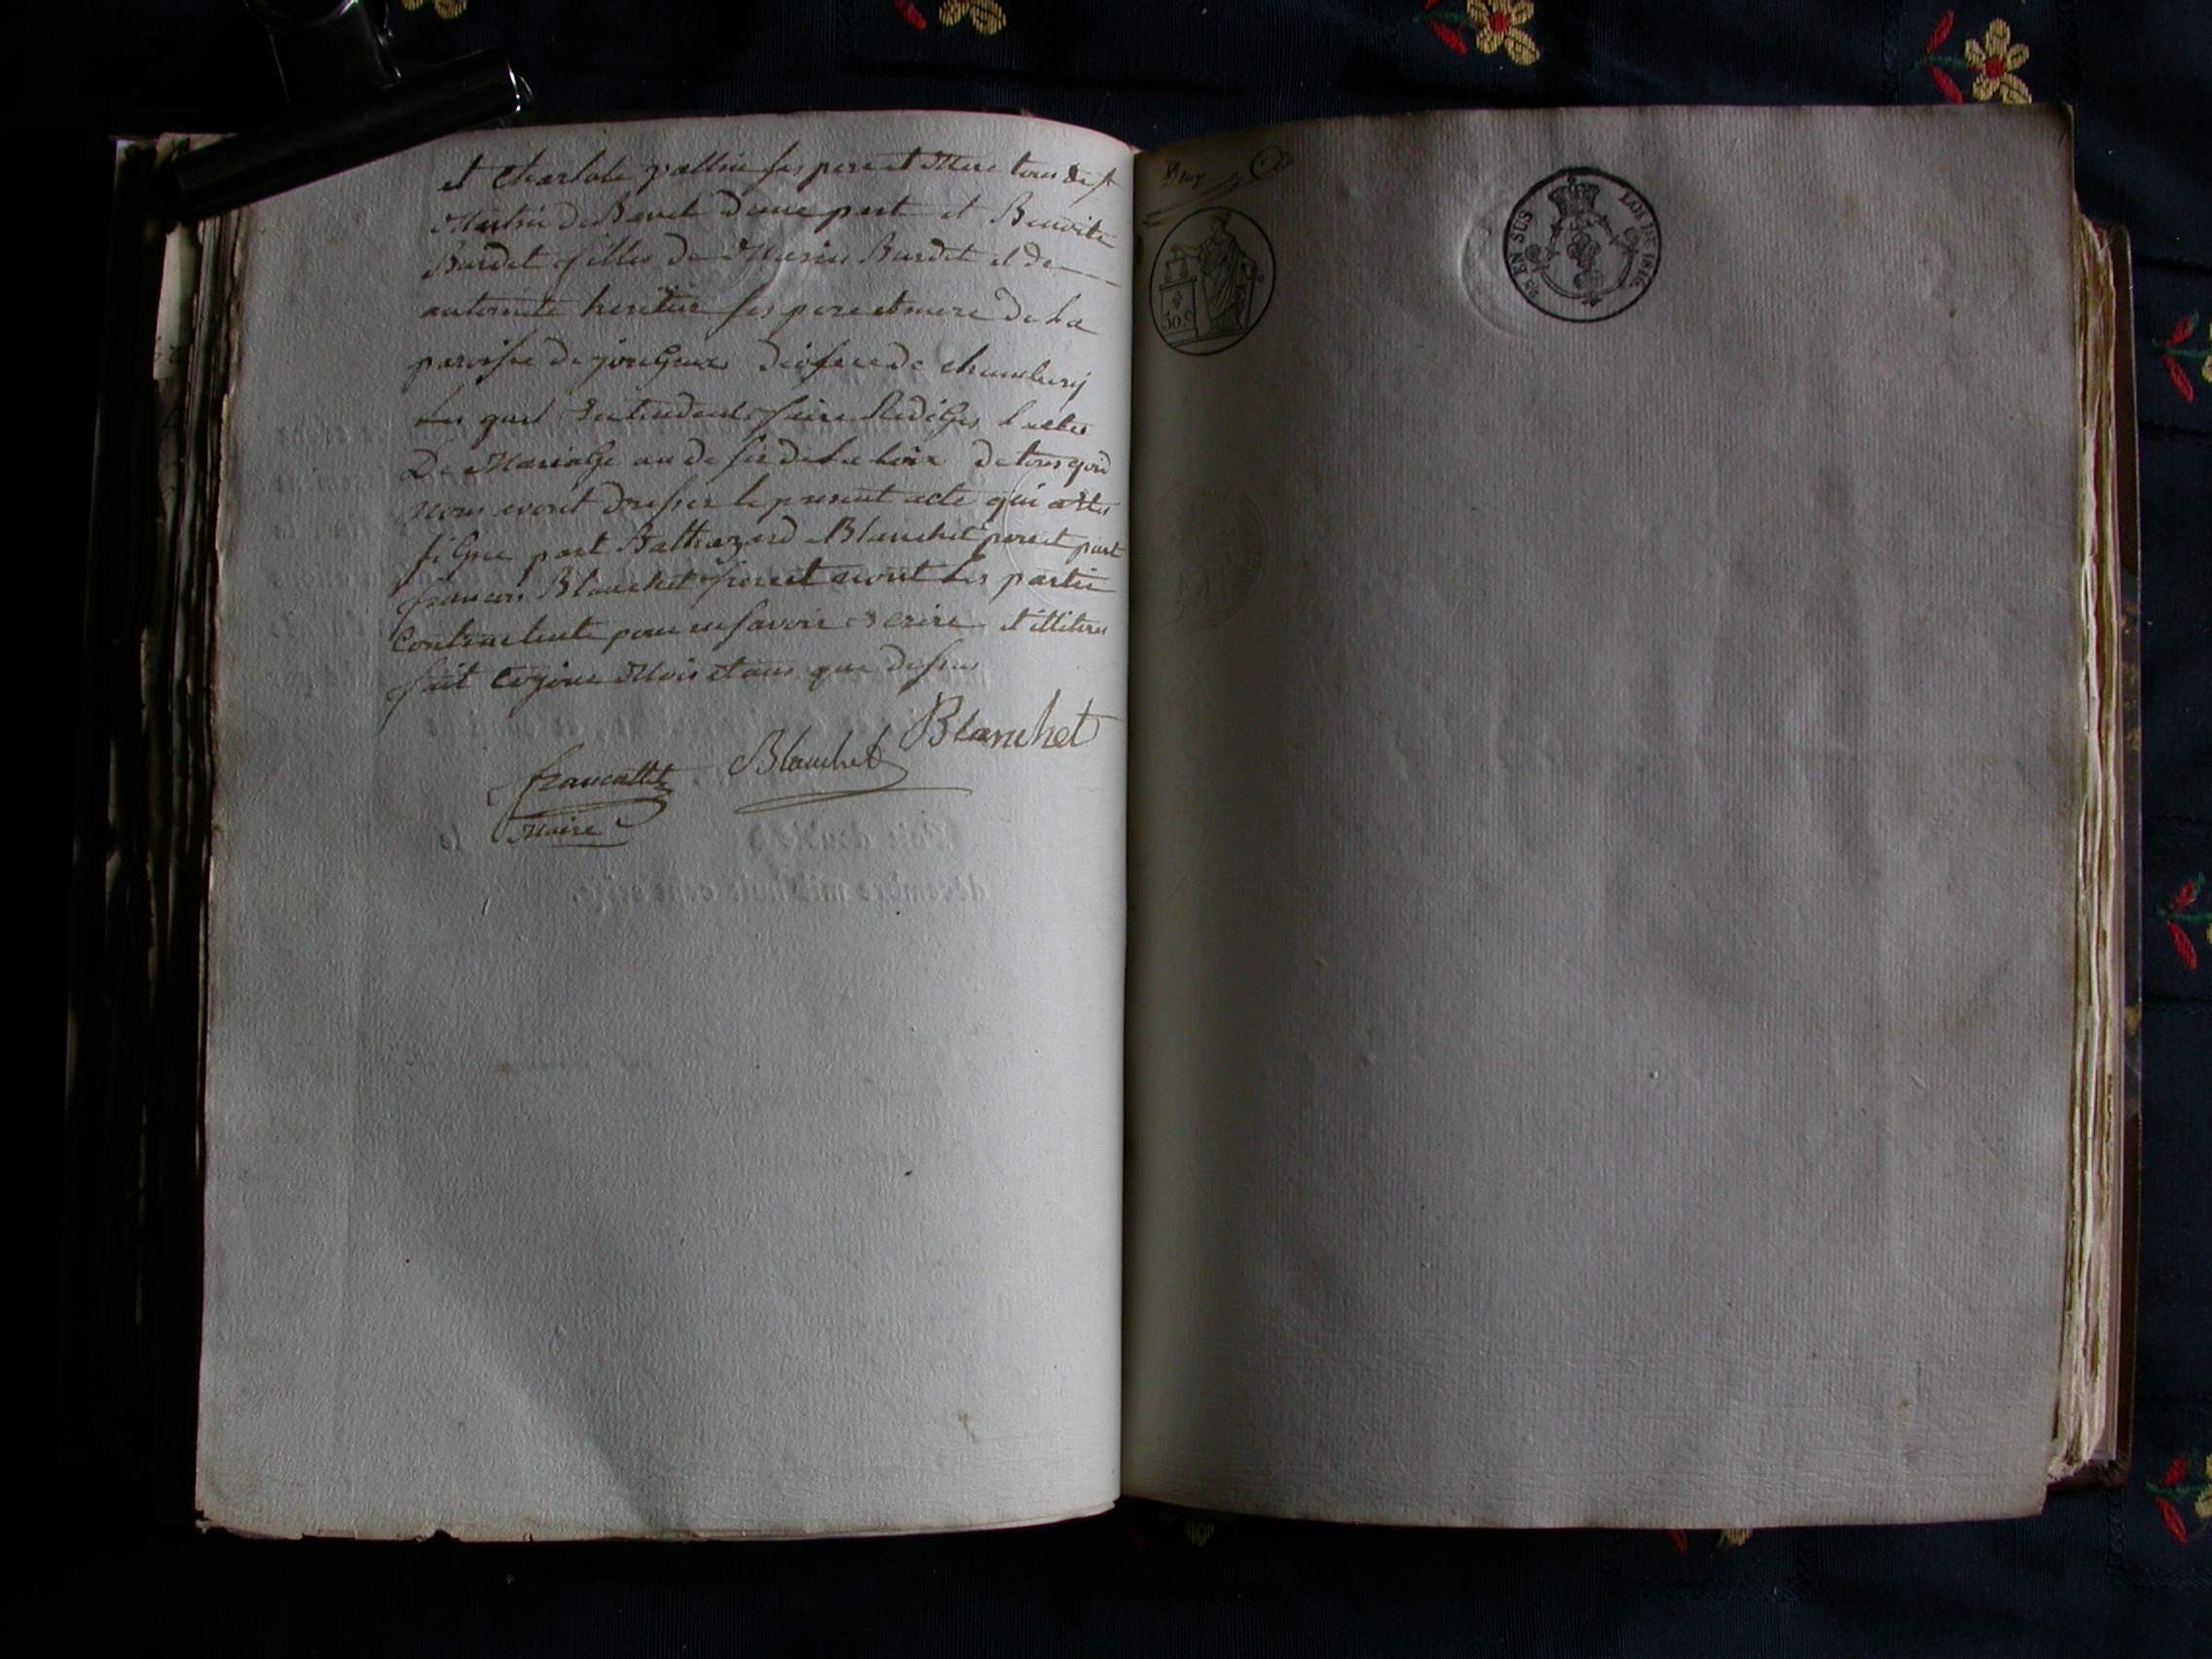 et Charlote pallin ses pere et Mere tous de st
Martin de Bavel d'une part et Benoite
Burdet filles de Marin Burdet et de
antoinete heritier ses pere et mere de La
paroisse de jongieux diosese de chambery
Les quel Entendent faire Rediger l'actes
De Mariage au desir de La Loix de tous quoi
nous avont dresser le present acte qui a etes
signe part Balthazard Blanchet pere et part
francois Blanchet frere et nont Les partie
Contractente pour ne savoir Ecrire et illitere
fait Ce jour Mois et ans que dessus
Blanchet
Blanchet
francallet
Maire
Deux
30 C.
EN SUS
LOI DE 1816.